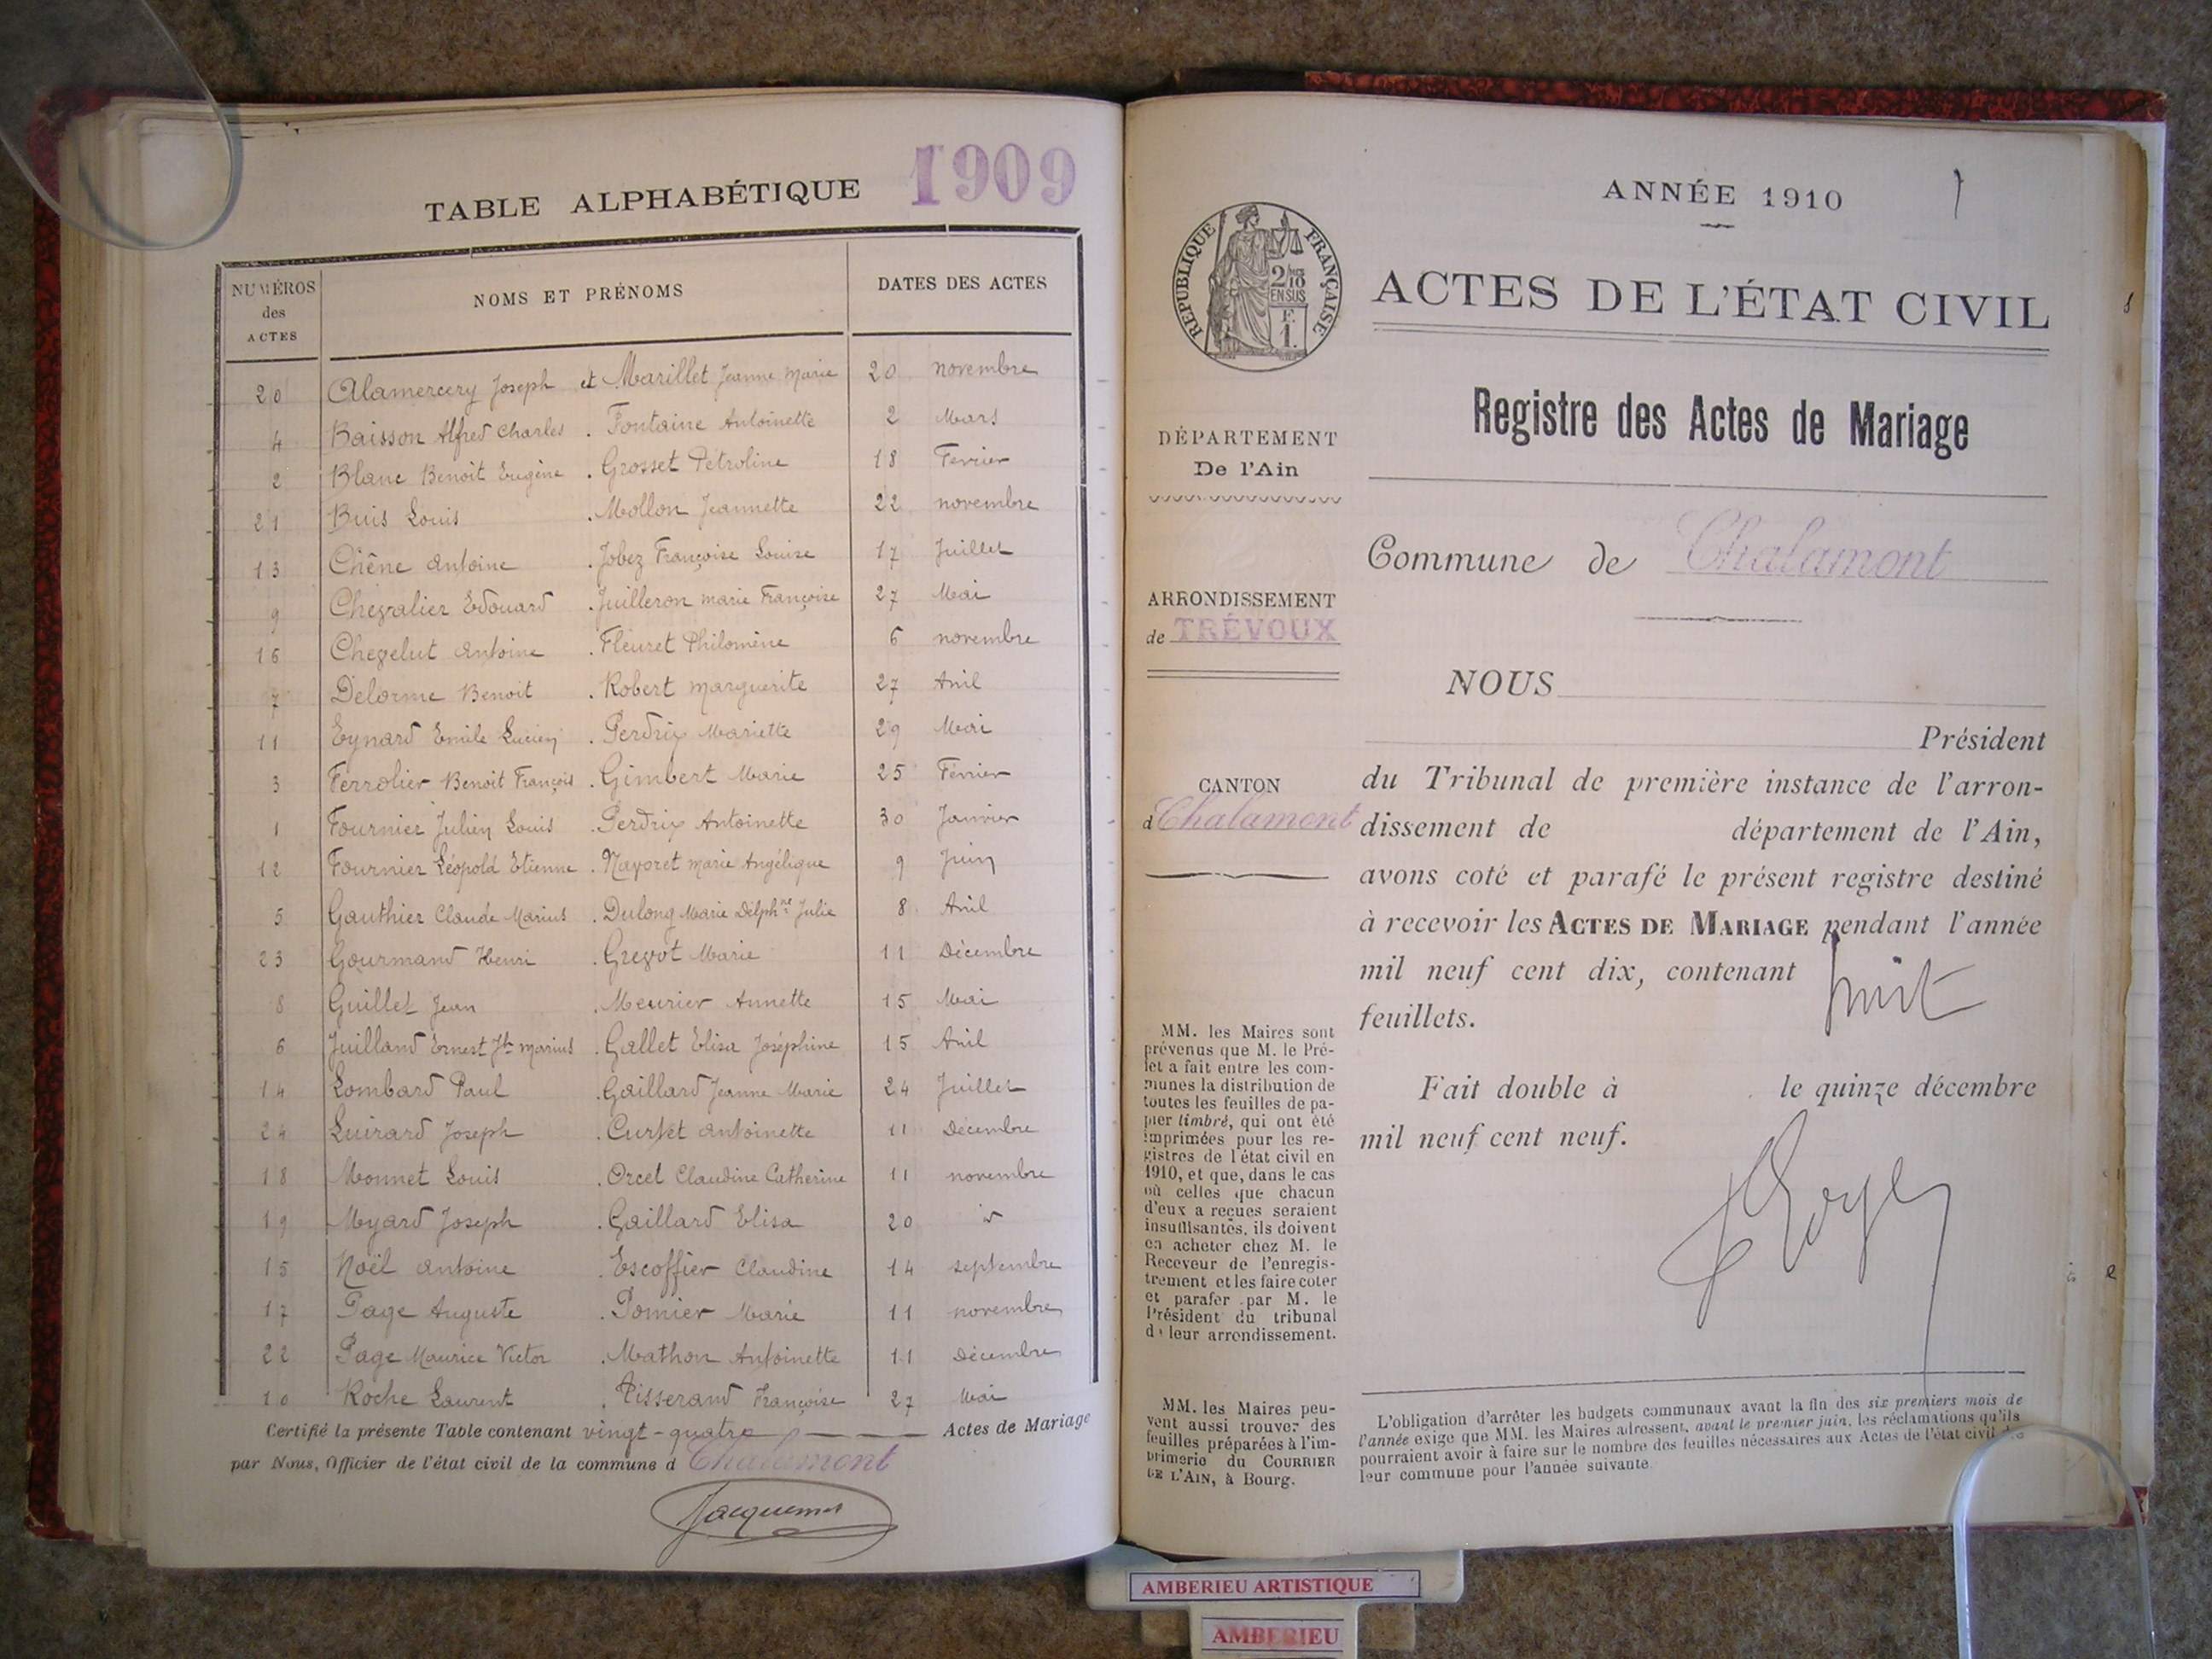 TABLE ALPHABÉTIQUE 1909
NUMÉROS
des
ACTES
NOMS ET PRÉNOMS
DATES DES ACTES
20 Alamercery Joseph et Marillet Jeanne Marie 20 novembre
4 Baisson Alfred Charles . Fontaine Antoinette 2 Mars
2 Blanc Benoit Eugène . Grosset Pétroline 18 Fevrier
21 Buis Louis . Mollon Jeannette 22 novembre
13 Chêne Antoine . Jobez Françoise Louise 17 Juillet
9 Chevalier Edouard . Juilleron marie Françoise 27 Mai
16 Chevelut Antoine . Fleuret Philomène 6 novembre
7 Delorme Benoit . Robert marguerite 27 Avril
11 Eynard Emile Lucien . Perdrix Mariette 29 Mai
3 Ferrolier Benoit François . Gimbert Marie 25 Février
1 Fournier Julien Louis . Perdrix Antoinette 30 Janvier
12 Fournier Léopold Etienne . Nayoret marie Angélique 9 Juin
5 Gauthier Claude Marius . Dulong Marie Delphne Julie 8 Avril
23 Gourmand Henri . Greyot Marie 11 Décembre
8 Guillet Jean . Meurier Annette 15 Mai
6 Juilland Ernest Jh marius . Gallet Elisa Joséphine 15 Avril
14 Lombard Paul . Gaillard Jeanne Marie 24 Juillet
24 Luirard Joseph . Curtet Antoinette 11 Décembre
18 Monnet Louis . Orcet Claudine Catherine 11 novembre
19 Myard Joseph . Gaillard Elisa 20 id
15 Noël Antoine . Escoffier Claudine 14 septembre
17 Page Auguste . Pomier Marie 11 novembre
22 Page Maurice Victor . Mathon Antoinette 11 Décembre
10 Roche Laurent . Tisserand Françoise 27 Mai
Certifié la présente Table contenant vingt-quatre Actes de Mariage
par Nous, Officier de l'état civil de la commune d Chalamont
Jacquemot
ANNÉE 1910
RÉPUBLIQUE FRANÇAISE
2/10
EN SUS
F.
1.
ACTES DE L'ÉTAT CIVIL
Registre des Actes de Mariage
DÉPARTEMENT
De l'Ain
Commune de Chalamont
ARRONDISSEMENT
de TRÉVOUX
CANTON
d Chalamont
NOUS
Président
du Tribunal de première instance de l'arron-
dissement de département de l'Ain,
avons coté et parafé le présent registre destiné
à recevoir les ACTES DE MARIAGE pendant l'année
mil neuf cent dix, contenant huit
feuillets.
Fait double à le quinze décembre
mil neuf cent neuf.
MM. les Maires sont
prévenus que M. le Pré-
fet a fait entre les com-
munes la distribution de
toutes les feuilles de pa-
pier timbré, qui ont été
imprimées pour les re-
gistres de l'état civil en
1910, et que, dans le cas
où celles que chacun
d'eux a reçues seraient
insuffisantes, ils doivent
en acheter chez M. le
Receveur de l'enregis-
trement et les faire coter
et parafer par M. le
Président du tribunal
de leur arrondissement.
MM. les Maires peu-
vent aussi trouver des
feuilles préparées à l'im-
primerie du COURRIER
DE L'AIN, à Bourg.
L'obligation d'arrêter les budgets communaux avant la fin des six premiers mois de
l'année exige que MM. les Maires adressent, avant le premier juin, les réclamations qu'ils
pourraient avoir à faire sur le nombre des feuilles nécessaires aux Actes de l'état civil de
leur commune pour l'année suivante
AMBERIEU ARTISTIQUE
AMBERIEU